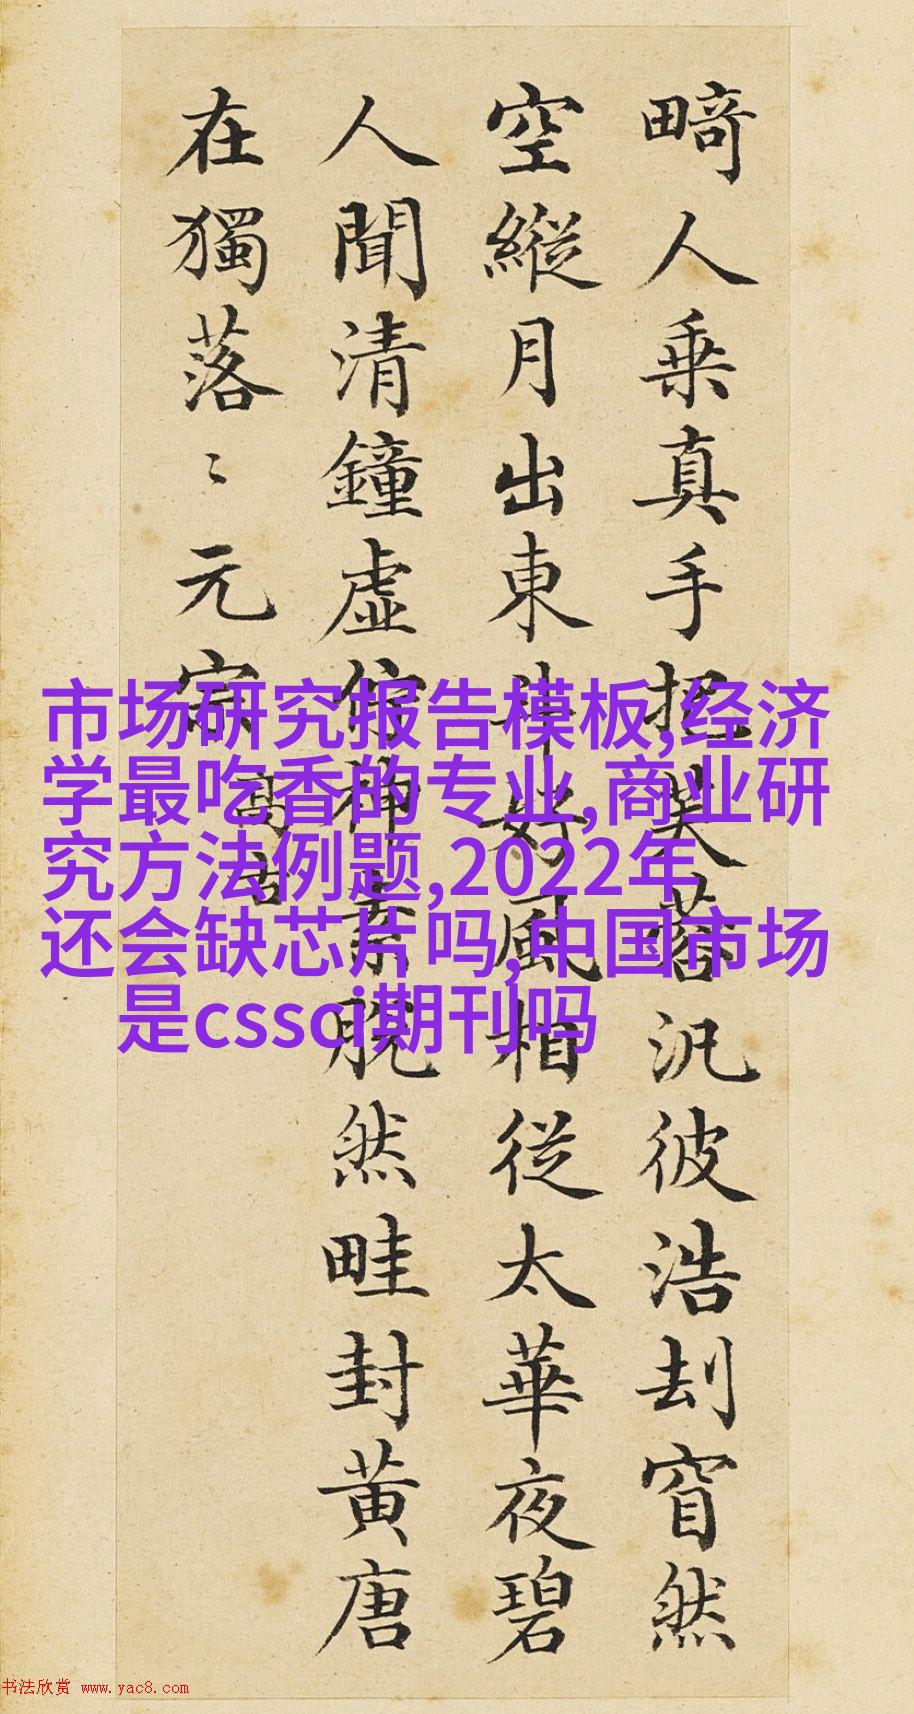 畸人乗真手把芙蓉汎彼浩刼窅然
空縱月出東斗好風相從太華夜碧
人聞清鐘虚佇神素脫然畦封黄唐
在獨落〻元宗
高古
市场研究报告模板,经济
学最吃香的专业,商业研
究方法例题,2022年
还会缺芯片吗,中国市场
是cssci期刊吗
书法欣赏 www.yac8.com